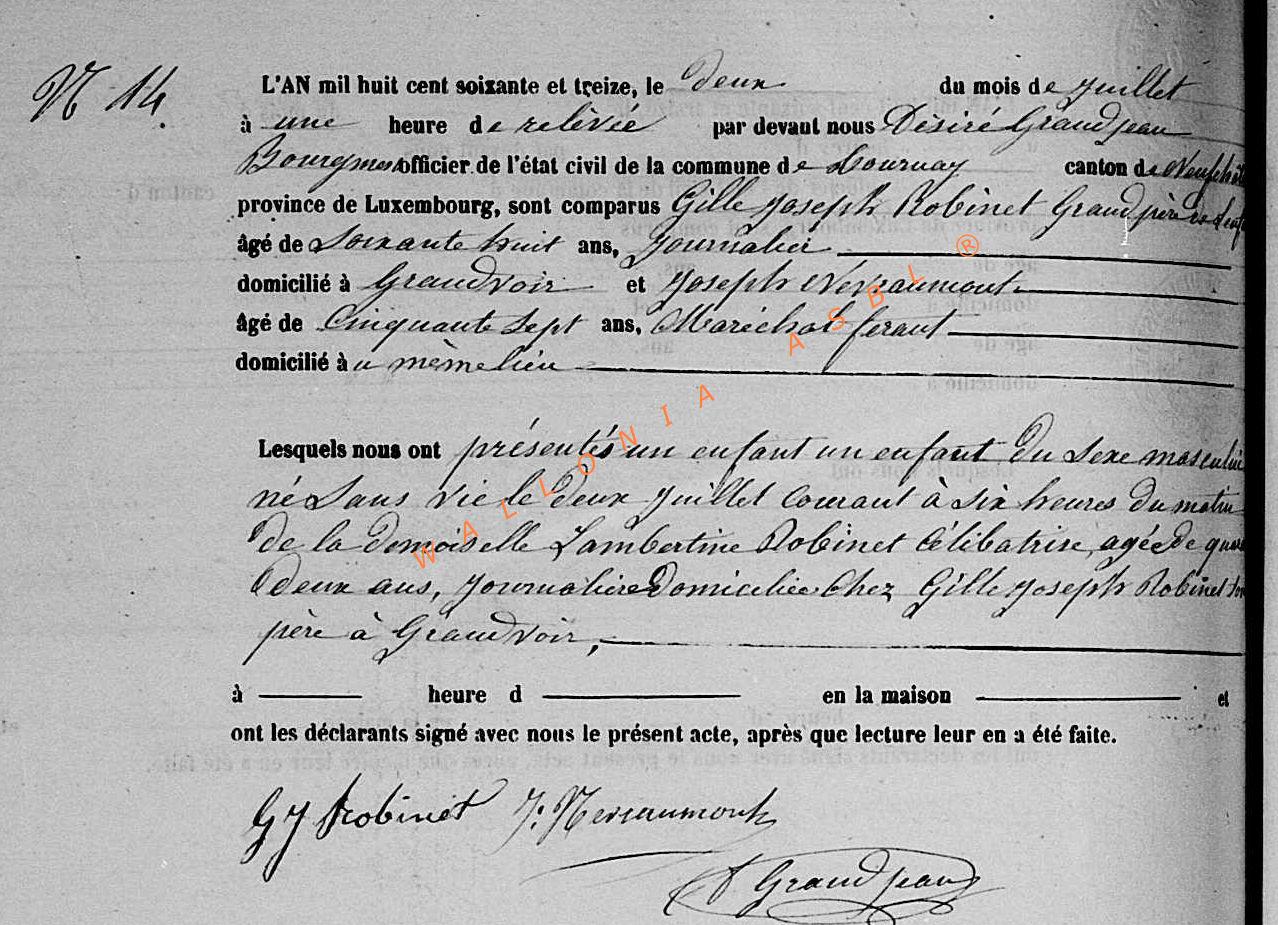 N 14.
L'AN mil huit cent soixante et treize, le deux du mois de juillet
à une heure de relévée par devant nous Désiré Grandjean
Bourgmes officier de l'état civil de la commune de Tournay canton de Neufchât
province de Luxembourg, sont comparus Gille Joseph Robinet Grand père de l'enf
âgé de Soixante huit ans, journalier
domicilié à Grandvoir et Joseph Nevraumont
âgé de Cinquante Sept ans, Maréchal ferant
domicilié à u même lieu
Lesquels nous ont présentés un enfant un enfant du Sexe masculin
né Sans vie le deux juillet courant à six heures du matin
de la demoiselle Lambertine Robinet célibatrise, agée de quara
deux ans, journalière domiciliée chez Gille Joseph Robinet son
père à Grandvoir,
à heure d en la maison et
ont les déclarants signé avec nous le présent acte, après que lecture leur en a été faite.
GJ Robinet J: Nevraumont
D Grandjean
WALLONIA ASBL ®